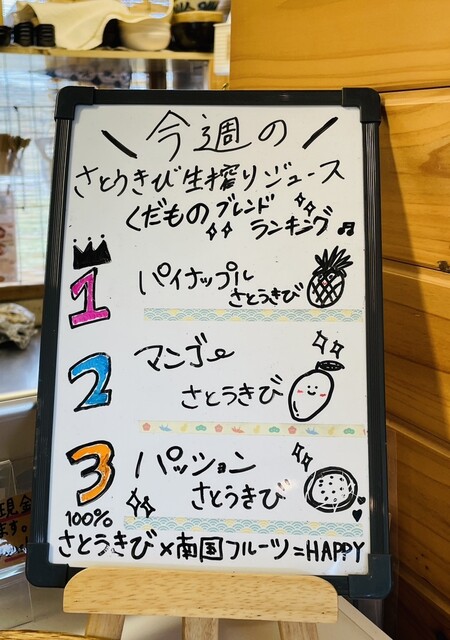 \ 今週の /
さとうきび生搾りジュース
くだものブレンド
ランキング♬
1 パイナップル
さとうきび
2 マンゴー
さとうきび
3 パッション
さとうきび
100%
さとうきび×南国フルーツ=HAPPY
現金
ます。